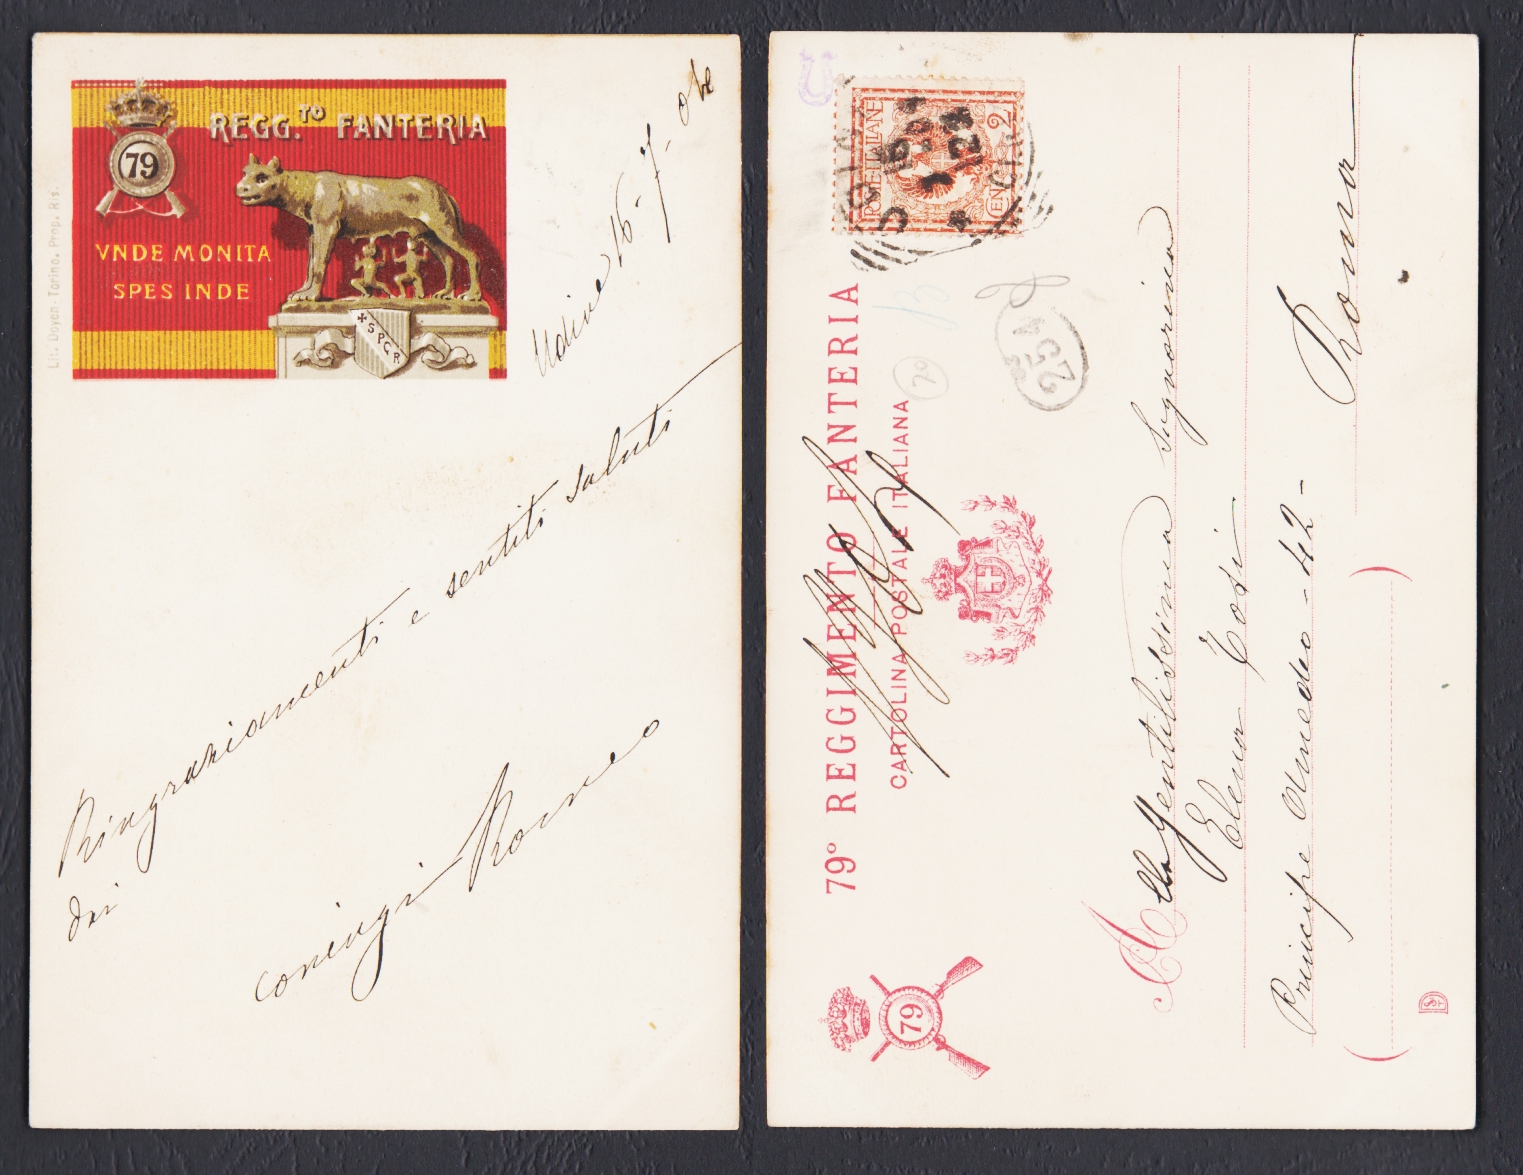 REGG.TO FANTERIA
79
VNDE MONITA
SPES INDE
S.P.Q.R
Lit. Doyen-Torino. Prop. Ris.
Udine 16-7-
Ringraziamenti e sentiti saluti
dai
coniugi Romeo
POSTE ITALIANE
CENT 2
79° REGGIMENTO FANTERIA
CARTOLINA POSTALE ITALIANA
79
254
70
Alla Gentilissima Signorina
Elena Tosi
Principe Amedeo - 42 -
Roma